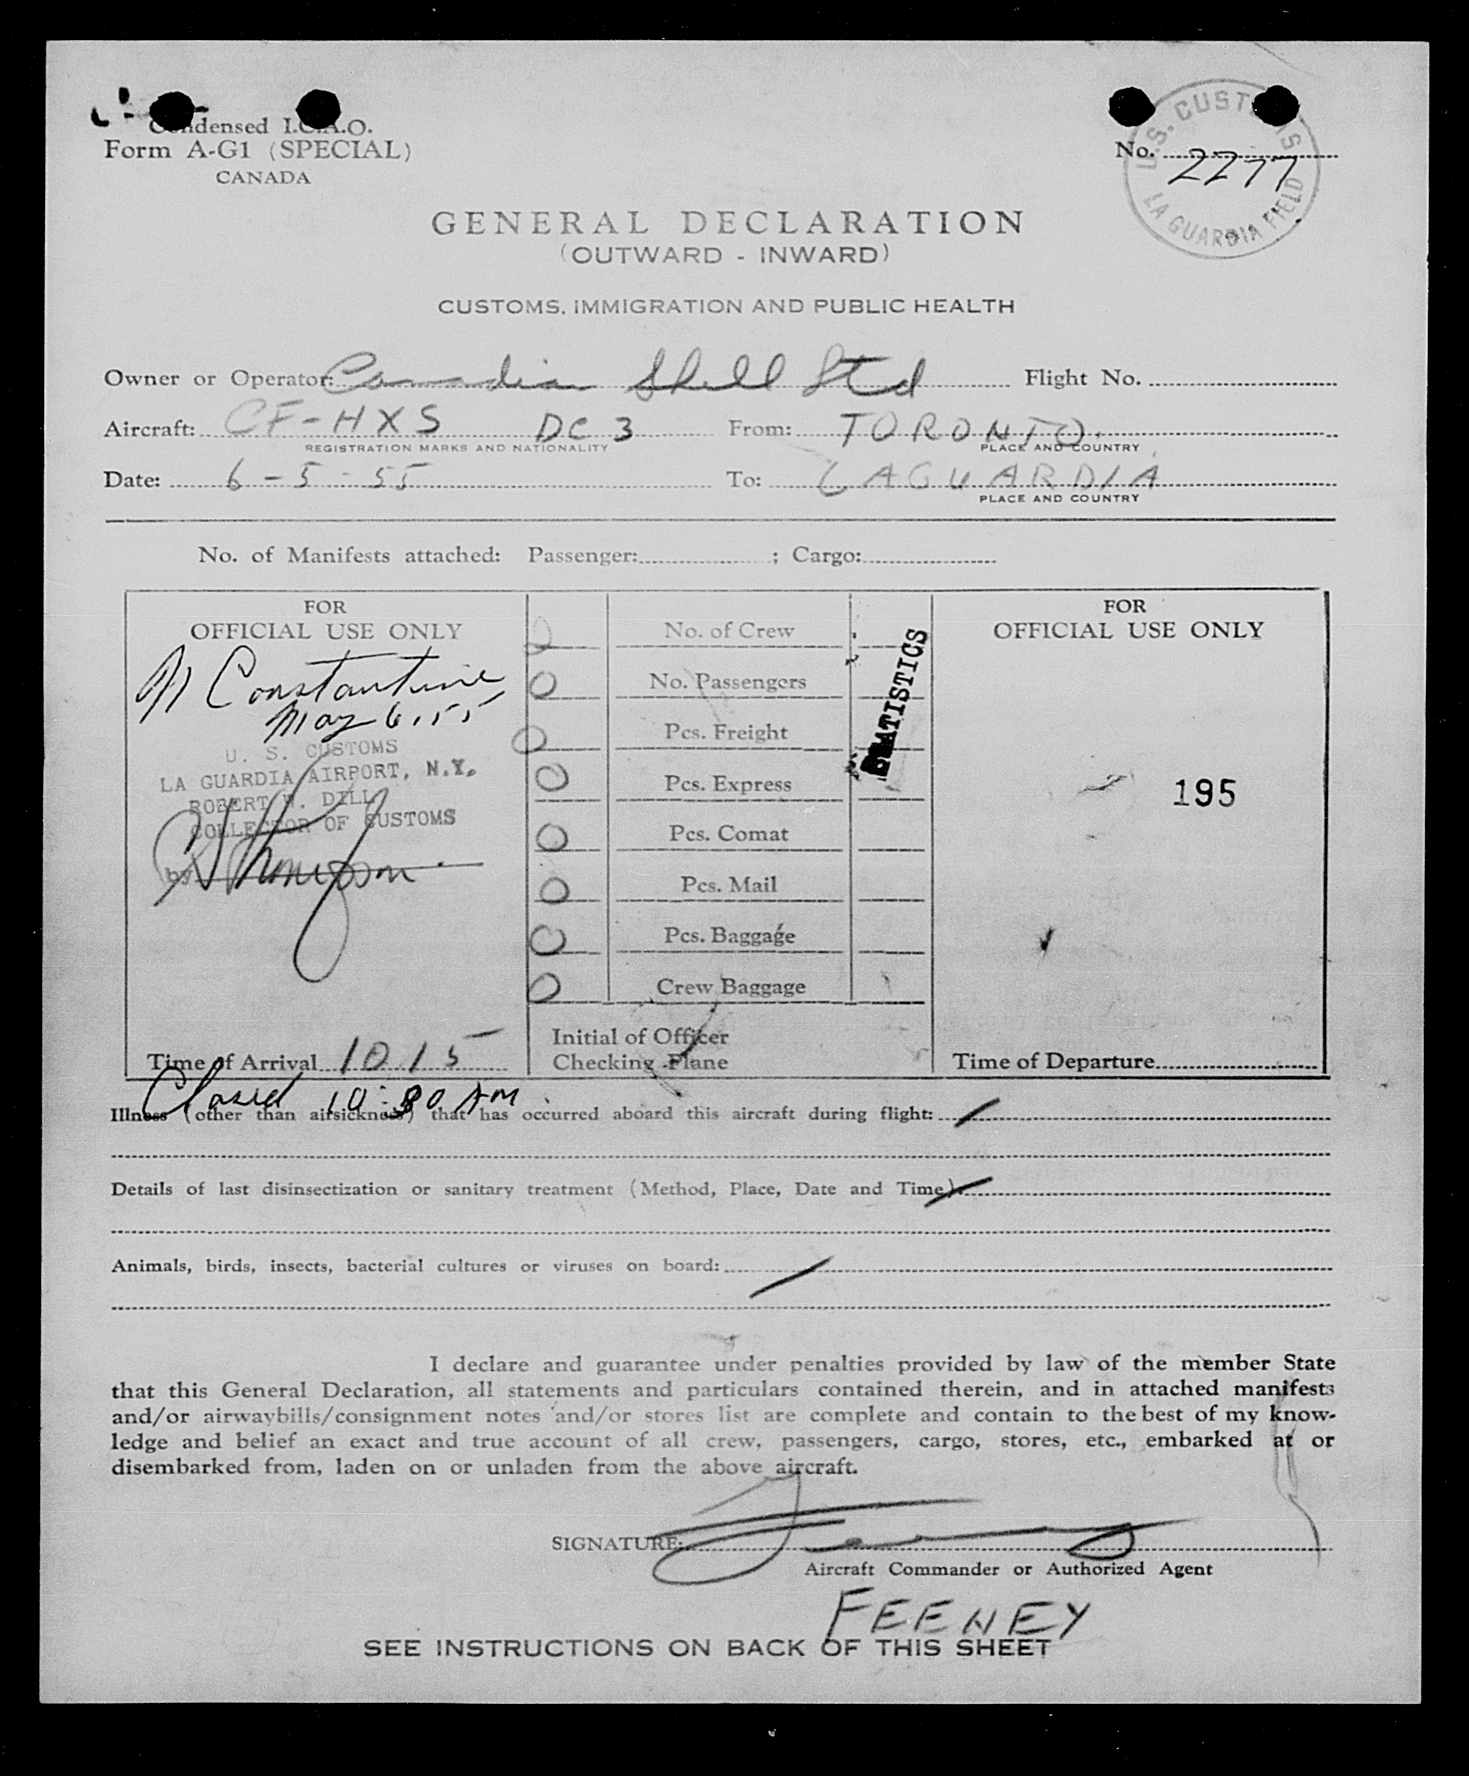 Condensed I.C.A.O.
Form A-G1 (SPECIAL)
CANADA
U.S. CUSTOMS
LA GUARDIA FIELD
No. 2277
GENERAL DECLARATION
(OUTWARD - INWARD)
CUSTOMS, IMMIGRATION AND PUBLIC HEALTH
Owner or Operator: Canadian Shell Ltd Flight No.
Aircraft: CF-HXS DC 3 From: TORONTO.
REGISTRATION MARKS AND NATIONALITY PLACE AND COUNTRY
Date: 6-5-55 To: LAGUARDIA
PLACE AND COUNTRY
No. of Manifests attached: Passenger: ; Cargo:
FOR
OFFICIAL USE ONLY
Constantine
May 6, 55
U. S. CUSTOMS
LA GUARDIA AIRPORT, N.Y.
ROBERT W. DILL
COLLECTOR OF CUSTOMS
by Thompson
Time of Arrival 10.15
Closed 10:30 AM
2 No. of Crew
0 No. Passengers
0 Pcs. Freight
0 Pcs. Express
0 Pcs. Comat
0 Pcs. Mail
0 Pcs. Baggage
0 Crew Baggage
Initial of Officer
Checking Plane
STATISTICS
FOR
OFFICIAL USE ONLY
195
Time of Departure
Illness (other than airsickness) that has occurred aboard this aircraft during flight:
Details of last disinsectization or sanitary treatment (Method, Place, Date and Time):
Animals, birds, insects, bacterial cultures or viruses on board:
I declare and guarantee under penalties provided by law of the member State
that this General Declaration, all statements and particulars contained therein, and in attached manifests
and/or airwaybills/consignment notes and/or stores list are complete and contain to the best of my know-
ledge and belief an exact and true account of all crew, passengers, cargo, stores, etc., embarked at or
disembarked from, laden on or unladen from the above aircraft.
SIGNATURE:
Aircraft Commander or Authorized Agent
FEENEY
SEE INSTRUCTIONS ON BACK OF THIS SHEET